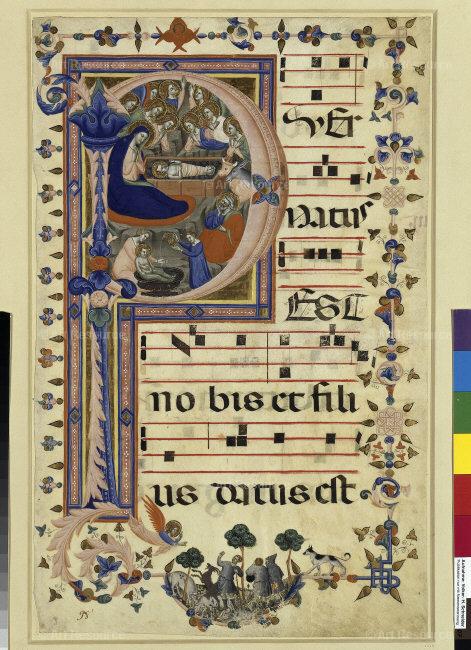 P
VER
NATUS
EST
no bis et fili
us datus est